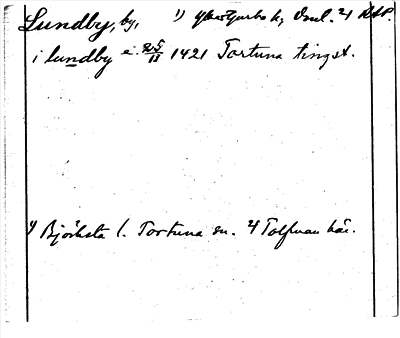 Lundby, by, 1) Ytterjurbo hd, Vsml. 2) RAP.
i lundby e. 25/11 1421 Tortuna tingst.
1) Björksta l. Tortuna sn. 2) Tolfman här.